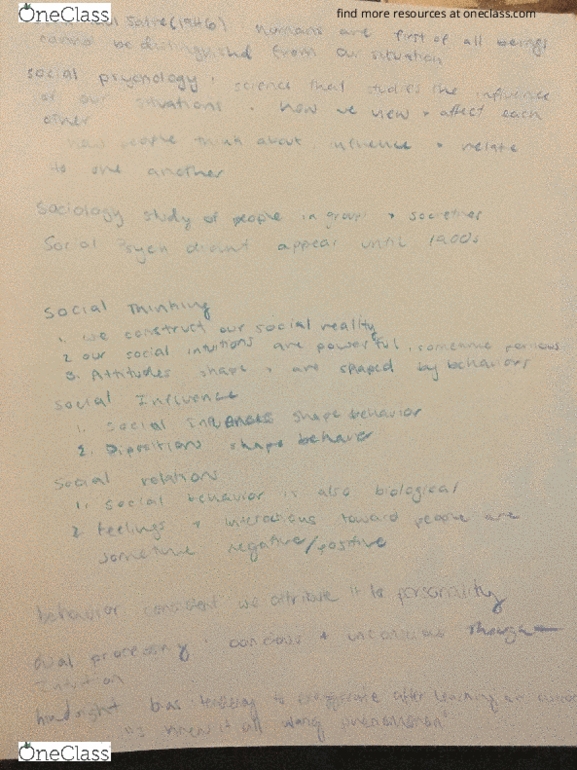 OneClass
find more resources at oneclass.com
(1946) humans are first of all beings
cannot be distinguished from our situation
social psychology · science that studies the influence
of our situations · how we view + affect each
other
how people think about, influence + relate
to one another
Sociology study of people in groups + societies
Social Psych didnt appear until 1900s
Social Thinking
1. we construct our social reality
2 our social intuitions are powerful,
3. Attitudes shape + are shaped by behaviors
Social Influence
1. Social influences shape behavior
2. Dipositions shape behavior
Social relations
1. Social behavior is also biological
2 feelings + interactions toward people are
sometime negative/positive
behavior consistent we attribute it to personality
dual processing · concious + unconcious
Intuition
hindsight bias tendency to exaggerate after learning an
"I knew it all along phenomenon"
OneClass